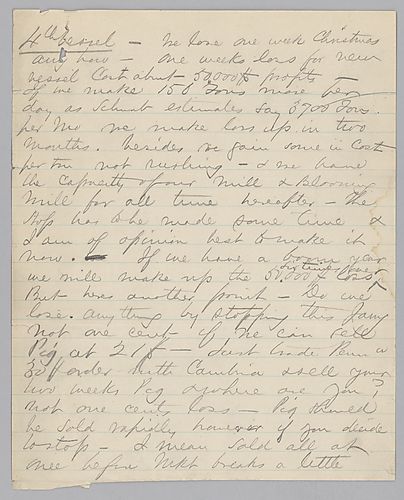 4th vessel — We lose one week Christmas
and now — one weeks loss for new
vessel Cost about 50,000 $ profits —
If we make 150 Tons more per
day as Schwab estimates say 3700 Tons.
per Mo we make loss up in two
Months. besides we gain some in Cost
per ton not rushing — & we have
the Capacity of our Mill & Blooming
Mill for all time hereafter — the
stop has to be made some time &
I am of opinion best to make it
now. — If we have a boom year
we will make up the 50,000 $ loss
But heres another point — Do we
lose anything by stopping this way
not one cent if We can sell
Pig at 21 $ — Just trade Penn a
30 order with Cambria & sell your
two weeks Pig & where are you?
Not one cents loss — Pig should
be sold rapidly however if you decide
to stop — I mean sold all at
once before Mkt breaks a little